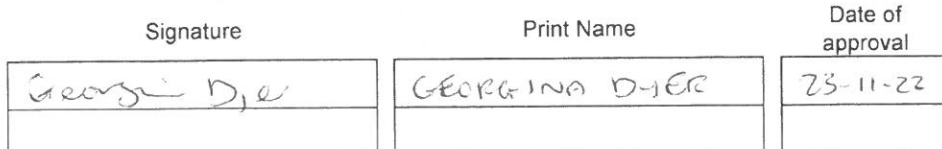 Signature Print Name Date of
approval
Georgina Dyer GEORGINA DYER 23-11-22